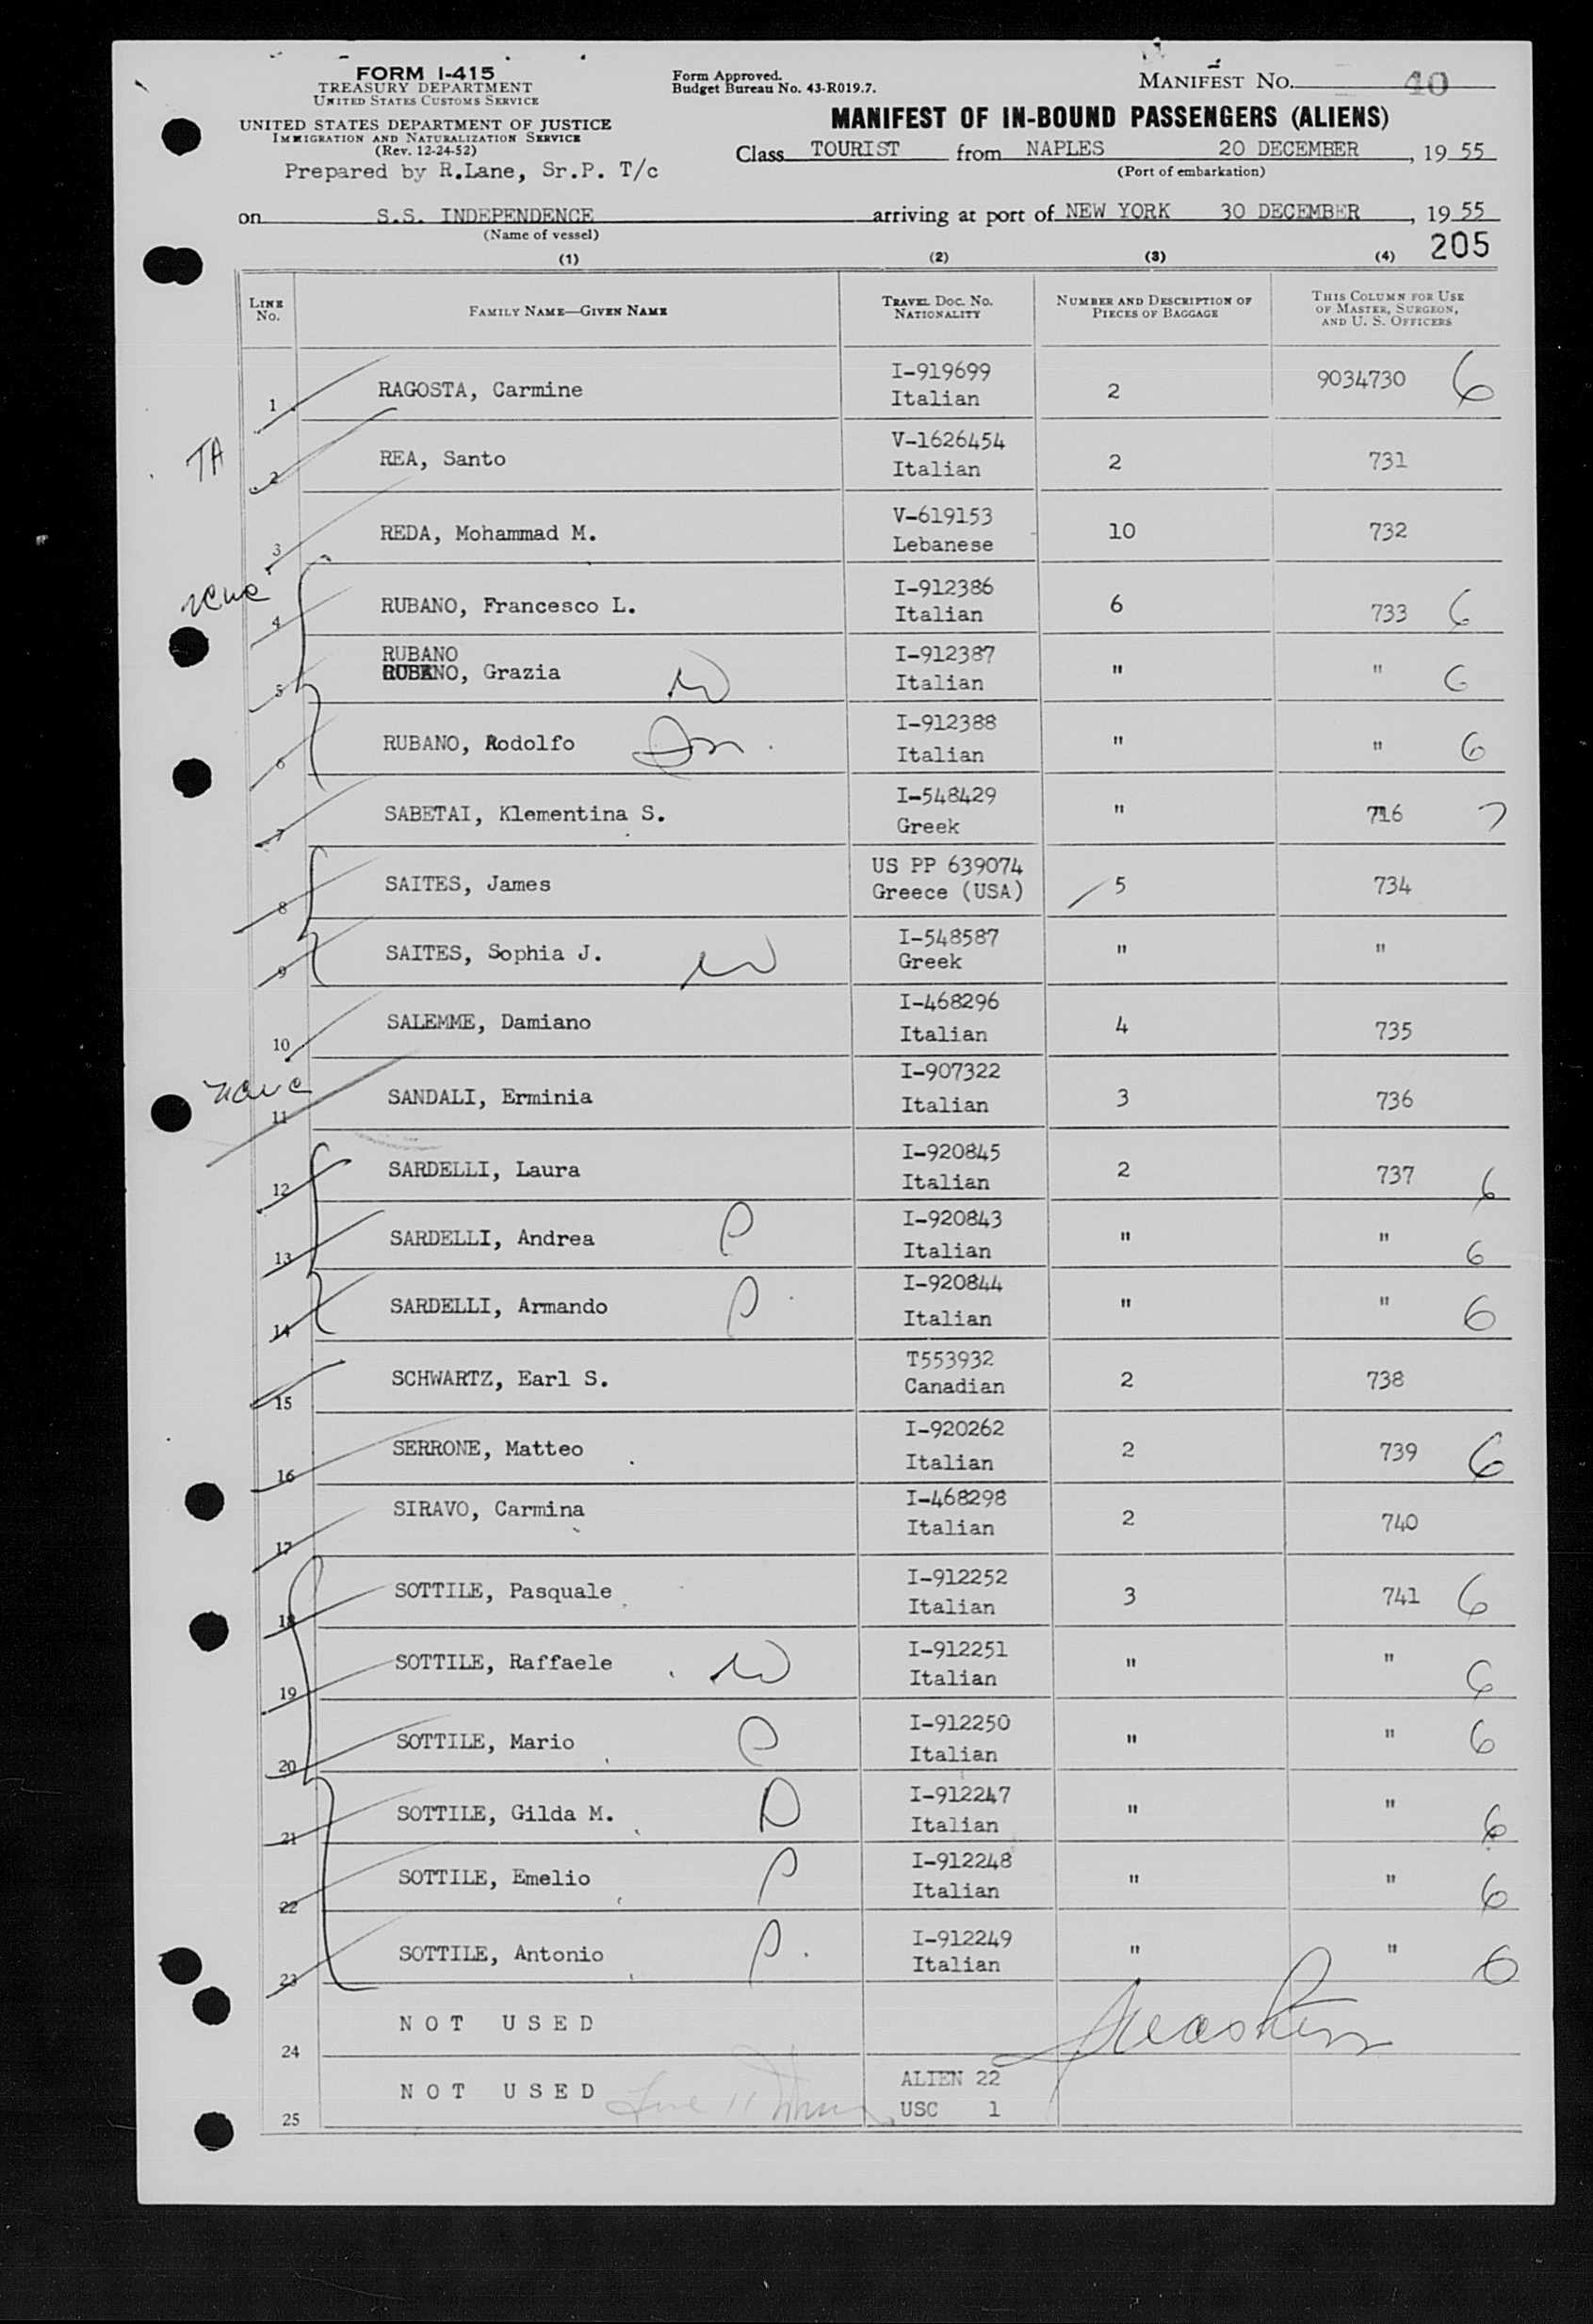 FORM I-415
TREASURY DEPARTMENT
UNITED STATES CUSTOMS SERVICE
UNITED STATES DEPARTMENT OF JUSTICE
IMMIGRATION AND NATURALIZATION SERVICE
(Rev. 12-24-52)
Prepared by R.Lane, Sr.P. T/c
Form Approved.
Budget Bureau No. 43-R019.7.
MANIFEST NO. 40
MANIFEST OF IN-BOUND PASSENGERS (ALIENS)
Class TOURIST from NAPLES 20 DECEMBER, 19 55
(Port of embarkation)
on S.S. INDEPENDENCE arriving at port of NEW YORK 30 DECEMBER, 19 55
(Name of vessel)
205
(1) (2) (3) (4)
LINE NO. FAMILY NAME—GIVEN NAME TRAVEL DOC. NO. NATIONALITY NUMBER AND DESCRIPTION OF PIECES OF BAGGAGE THIS COLUMN FOR USE OF MASTER, SURGEON, AND U. S. OFFICERS
1 RAGOSTA, Carmine I-919699 Italian 2 9034730 6
TA
2 REA, Santo V-1626454 Italian 2 731
3 REDA, Mohammad M. V-619153 Lebanese 10 732
4 RUBANO, Francesco L. I-912386 Italian 6 733 6
RUBANO
5 RUBANO, Grazia W I-912387 Italian " " 6
6 RUBANO, Rodolfo Son. I-912388 Italian " " 6
7 SABETAI, Klementina S. I-548429 Greek " 716 7
8 SAITES, James US PP 639074 Greece (USA) 5 734
9 SAITES, Sophia J. W I-548587 Greek " "
10 SALEMME, Damiano I-468296 Italian 4 735
11 SANDALI, Erminia I-907322 Italian 3 736
12 SARDELLI, Laura I-920845 Italian 2 737 6
13 SARDELLI, Andrea P I-920843 Italian " " 6
14 SARDELLI, Armando P I-920844 Italian " " 6
15 SCHWARTZ, Earl S. T553932 Canadian 2 738
16 SERRONE, Matteo I-920262 Italian 2 739 6
17 SIRAVO, Carmina I-468298 Italian 2 740
18 SOTTILE, Pasquale I-912252 Italian 3 741 6
19 SOTTILE, Raffaele W I-912251 Italian " " 6
20 SOTTILE, Mario P I-912250 Italian " " 6
21 SOTTILE, Gilda M. D I-912247 Italian " " 6
22 SOTTILE, Emelio P I-912248 Italian " " 6
23 SOTTILE, Antonio P. I-912249 Italian " " 6
24 NOT USED
25 NOT USED ALIEN 22
USC 1